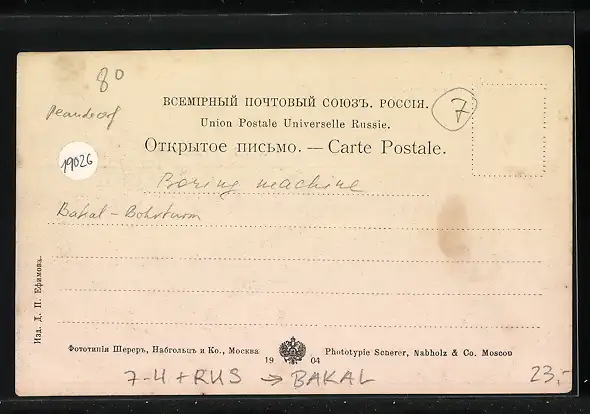 80
ВСЕМІРНЫЙ ПОЧТОВЫЙ СОЮЗЪ. РОССІЯ.
7
Union Postale Universelle Russie.
Открытое письмо. — Carte Postale.
19026
Boring machine
Bakal - Bohrturm
Изд. Д. П. Ефимовъ.
Фототипія Шереръ, Набгольцъ и Ко., Москва
19 04
Phototypie Scherer, Nabholz & Co. Moscou
7-4 + RUS → BAKAL
23,-